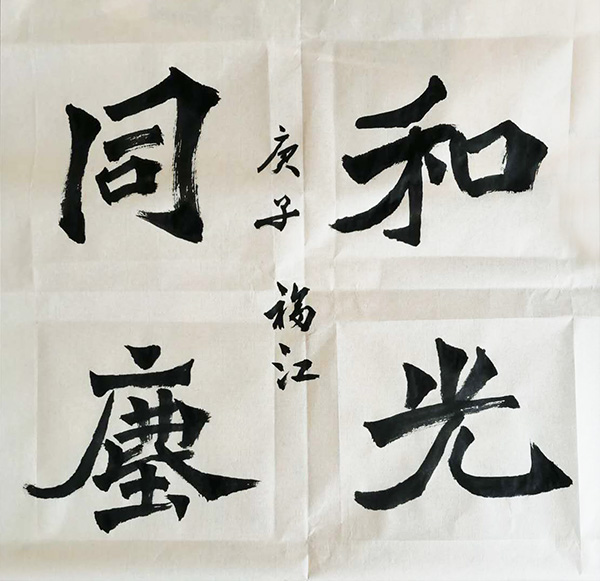 和光
同塵
庚子 福江